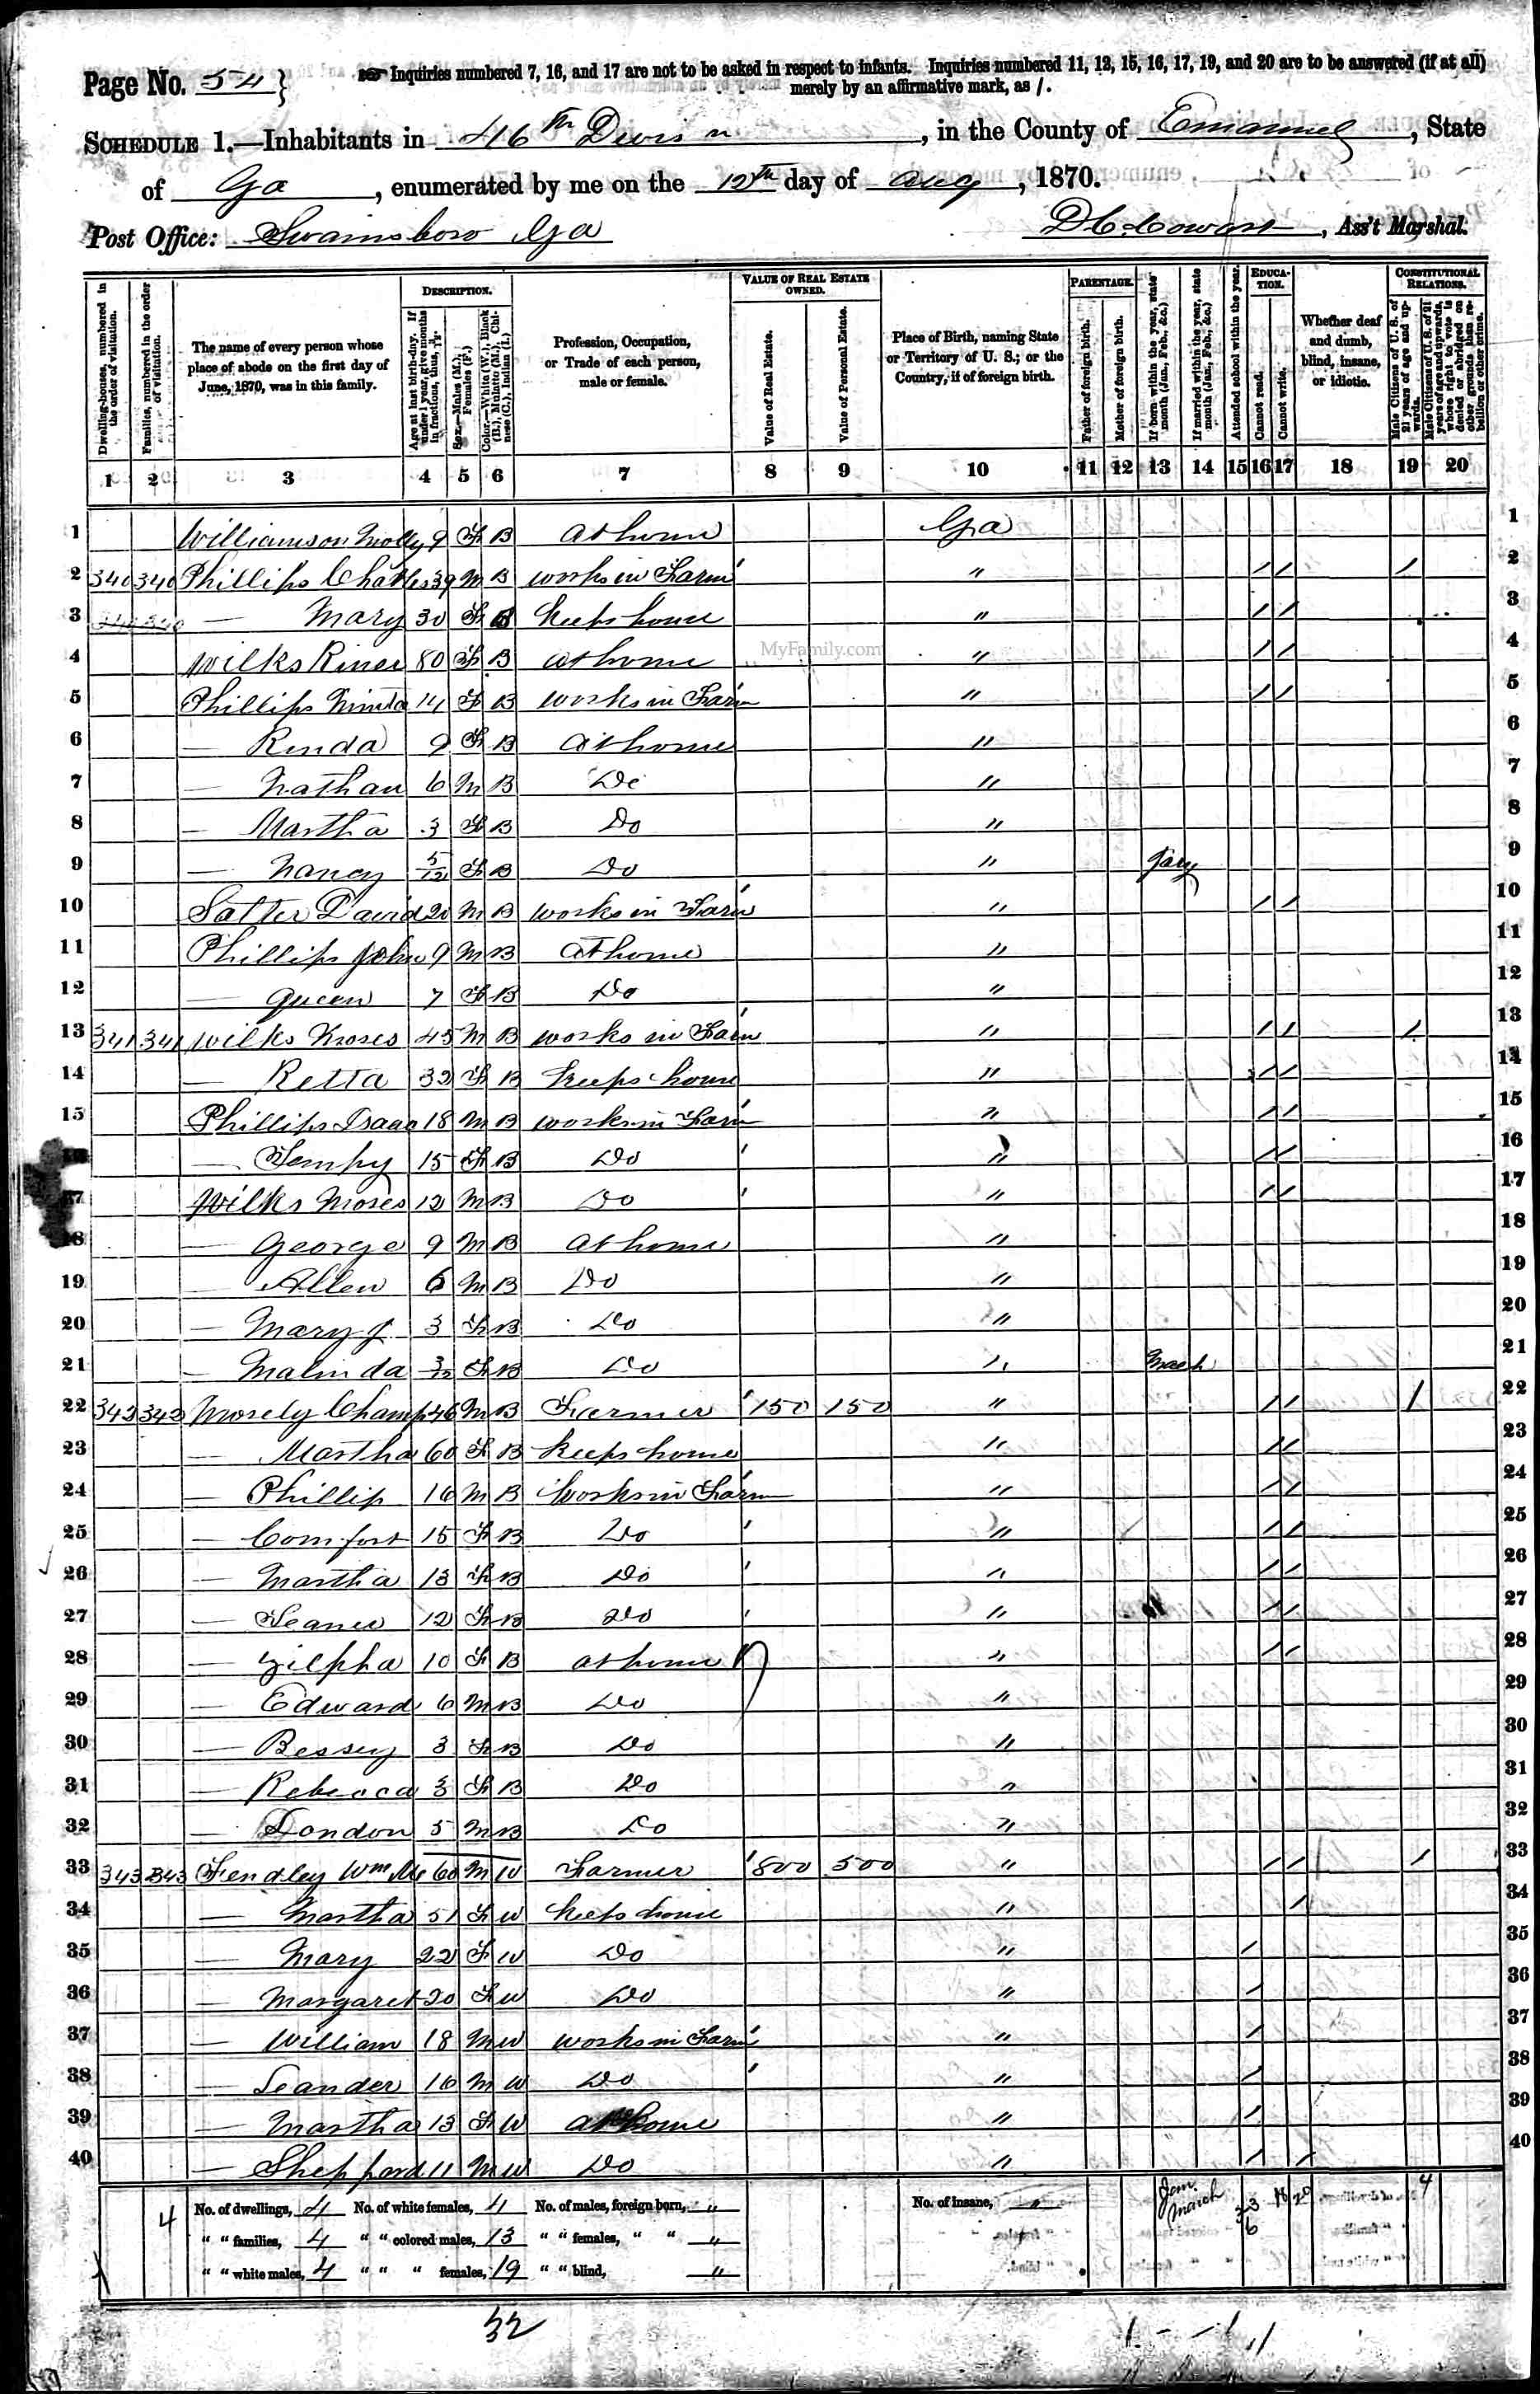 Page No. 54 } Inquiries numbered 7, 16, and 17 are not to be asked in respect to infants. Inquiries numbered 11, 12, 15, 16, 17, 19, and 20 are to be answered (if at all)
merely by an affirmative mark, as /.
SCHEDULE 1.—Inhabitants in 46th Divis n, in the County of Emanuel, State
of Ga, enumerated by me on the 12th day of Aug, 1870.
Post Office: Swainsboro Ga D C. Cowart, Ass't Marshal.
Dwelling-houses, numbered in the order of visitation.
Families, numbered in the order of visitation.
The name of every person whose place of abode on the first day of June, 1870, was in this family.
DESCRIPTION.
Age at last birth-day. If under 1 year, give months in fractions, thus, 3/12.
Sex.—Males (M.), Females (F.)
Color.—White (W.), Black (B.), Mulatto (M.), Chinese (C.), Indian (I.)
Profession, Occupation, or Trade of each person, male or female.
VALUE OF REAL ESTATE OWNED.
Value of Real Estate.
Value of Personal Estate.
Place of Birth, naming State or Territory of U. S.; or the Country, if of foreign birth.
PARENTAGE.
Father of foreign birth.
Mother of foreign birth.
If born within the year, state month (Jan., Feb., &c.)
If married within the year, state month (Jan., Feb., &c.)
Attended school within the year.
EDUCATION.
Cannot read.
Cannot write.
Whether deaf and dumb, blind, insane, or idiotic.
CONSTITUTIONAL RELATIONS.
Male Citizens of U. S. of 21 years of age and upwards.
Male Citizens of U. S. of 21 years of age and upwards, whose right to vote is denied or abridged on other grounds than rebellion or other crime.
1 2 3 4 5 6 7 8 9 10 11 12 13 14 15 16 17 18 19 20
1 Williamson Molly 9 F B At home Ga 1
2 340 340 Phillips Charles 39 M B works in Farm ' " / / / 2
3 340 340 — Mary 30 F B Keeps house " / / 3
4 Wilks Riner 80 F B at home " / / 4
MyFamily.com
5 Phillips Minta 14 F B works in Farm ' " / / 5
6 — Rinda 9 F B At home " 6
7 — Nathan 6 M B Do " 7
8 — Martha 3 F B Do " 8
9 — Nancy 5/12 F B Do " Jany 9
10 Salter David 20 M B works in Farm ' " / / 10
11 Phillips John 9 M B At home " 11
12 — Queen 7 F B Do " 12
13 341 341 Wilks Moses 45 M B works in Farm ' " / / / 13
14 — Retta 32 F B Keeps house " / / 14
15 Phillips Isaac 18 M B works in Farm ' " / / 15
16 — Tempy 15 F B Do ' " / / 16
17 Wilks Moses 12 M B Do ' " / / 17
18 — George 9 M B At home " 18
19 — Allen 6 M B Do " 19
20 — Mary J 3 F B Do " 20
21 — Malinda 3/12 F B Do " March 21
22 342 342 Mosely Champ 46 M B Farmer ' 150 150 " / / / 22
23 — Martha 60 F B Keeps house " / / 23
24 — Phillip 16 M B Works in Farm ' " / / 24
25 — Comfort 15 F B Do ' " / / 25
26 — Martha 13 F B Do ' " / / 26
27 — 12 F B Do ' " / / 27
28 — Zilpha 10 F B at home " / / 28
29 — Edward 6 M B Do " 29
30 — Bessey 3 F B Do " 30
31 — Rebecca 3 F B Do " 31
32 — London 5 M B Do " 32
33 343 343 Fendley Wm Mc 60 M W Farmer ' 800 500 " / / / 33
34 — Martha 51 F W Keeps house " / 34
35 — Mary 22 F W Do " / 35
36 — Margaret 20 F W Do " / 36
37 — William 18 M W works in Farm ' " / 37
38 — Leander 16 M W Do ' " / 38
39 — Martha 13 F W at home " / 39
40 — Sheppard 11 M W Do " / / 40
4 No. of dwellings, 4 No. of white females, 4 No. of males, foreign born, " No. of insane, " Jan. March 18 20 4
" " families, 4 " " colored males, 13 " " females, " " "
" " white males, 4 " " " females, 19 " " blind, "
32